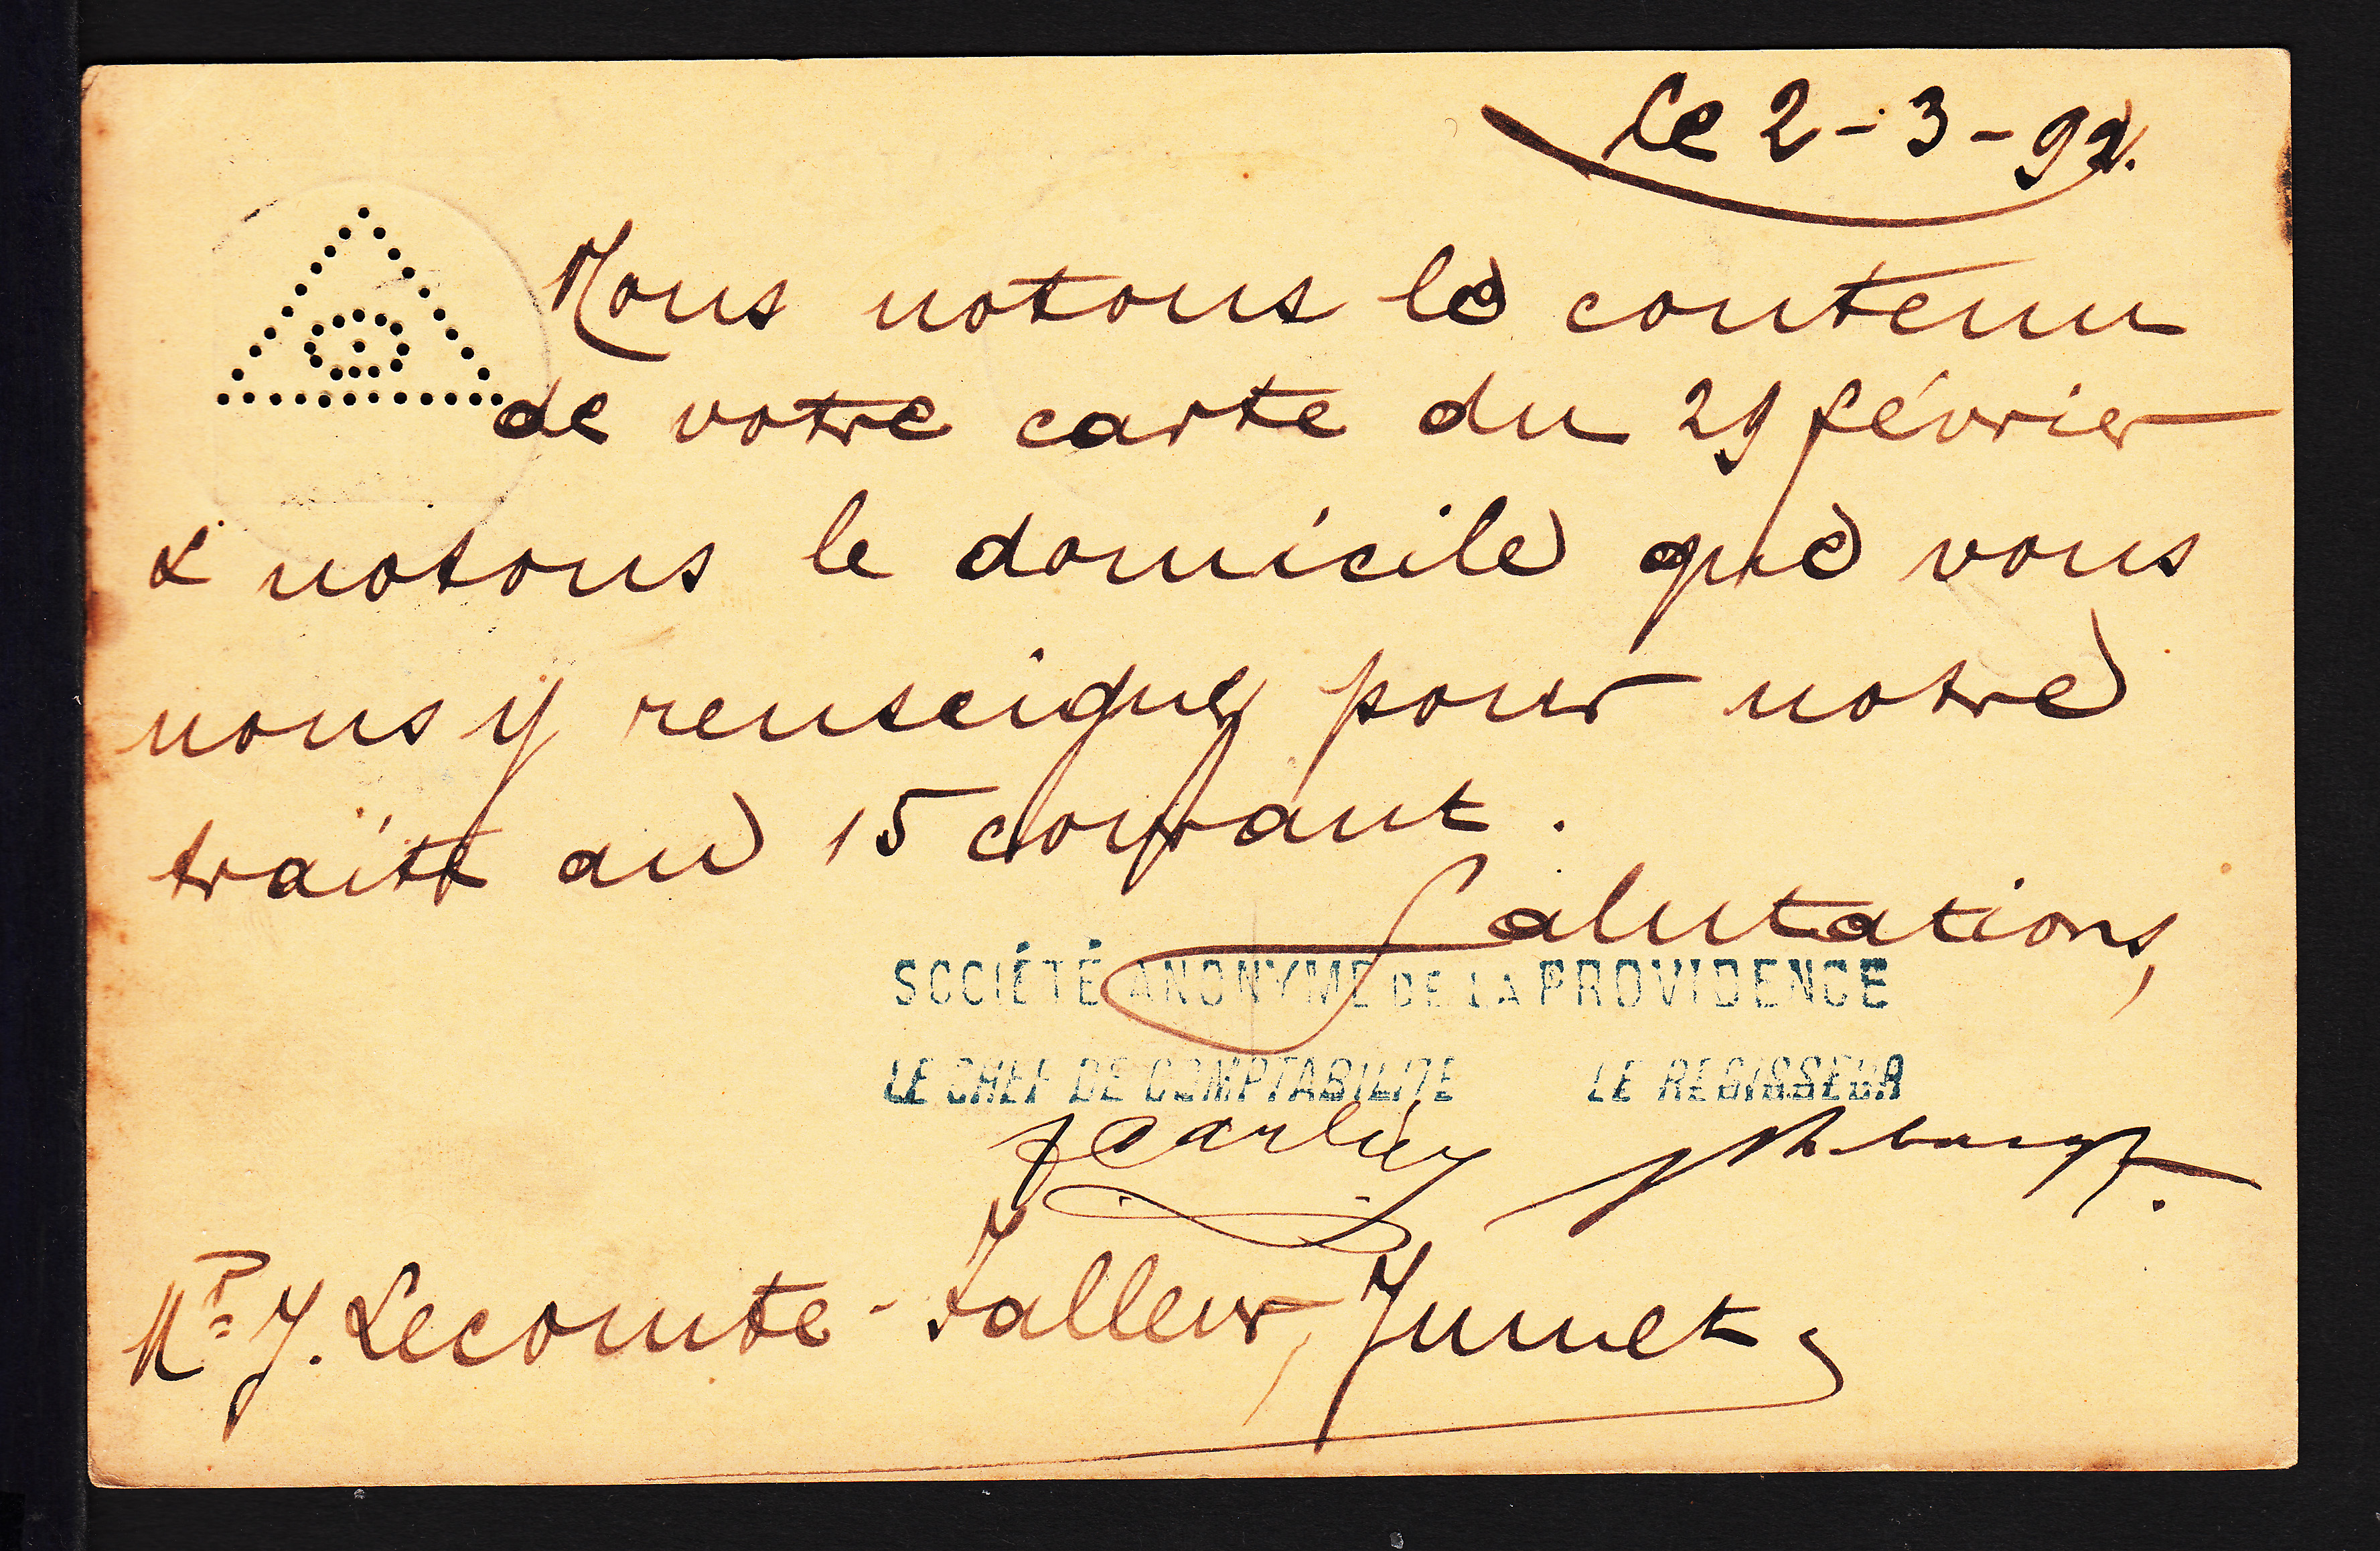 le 2-3-92.
Nous notons le contenu
de votre carte du 29 février
& notons le domicile que vous
nous y renseignez pour notre
traite au 15 courant.
Salutations,
SOCIÉTÉ ANONYME DE LA PROVIDENCE
LE CHEF DE COMPTABILITE LE REGISSEUR
J Carlier
Mr J. Lecomte-Falleur, Jumet